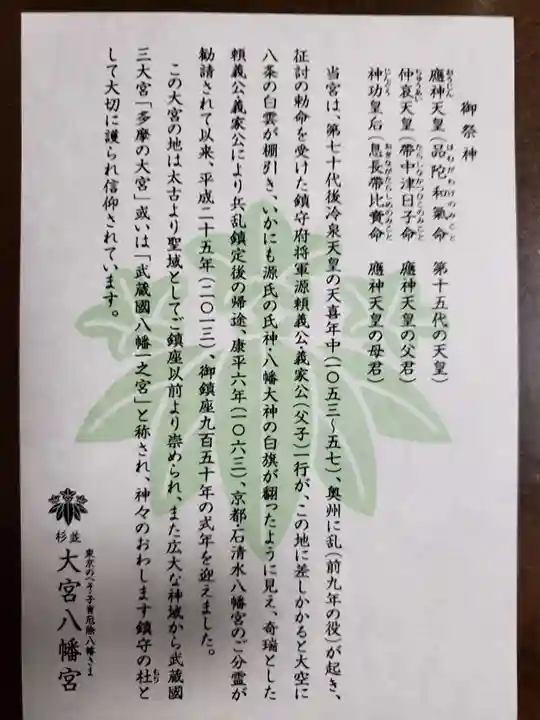 御祭神
應神天皇(品陀和氣命 第十五代の天皇)
おうじん ほむだわけのみこと
仲哀天皇(帶中津日子命 應神天皇の父君)
ちゅうあい たらしなかつひこのみこと
神功皇后(息長帶比賣命 應神天皇の母君)
じんぐう おきながたらしひめのみこと
当宮は、第七十代後冷泉天皇の天喜年中(一〇五三～五七)、奥州に乱(前九年の役)が起き、
征討の勅命を受けた鎮守府将軍源頼義公・義家公(父子)一行が、この地に差しかかると大空に
八条の白雲が棚引き、いかにも源氏の氏神・八幡大神の白旗が翻ったように見え、奇瑞とした
頼義公義家公により兵乱鎮定後の帰途、康平六年(一〇六三)、京都・石清水八幡宮のご分霊が
勧請されて以来、平成二十五年(二〇一三)、御鎮座九百五十年の式年を迎えました。
この大宮の地は太古より聖域としてご鎮座以前より崇められ、また広大な神域から武蔵國
三大宮「多摩の大宮」或いは「武蔵國八幡一之宮」と称され、神々のおわします鎮守の杜と
もり
して大切に護られ信仰されています。
東京のへそ・子育厄除八幡さま
杉並
大宮八幡宮